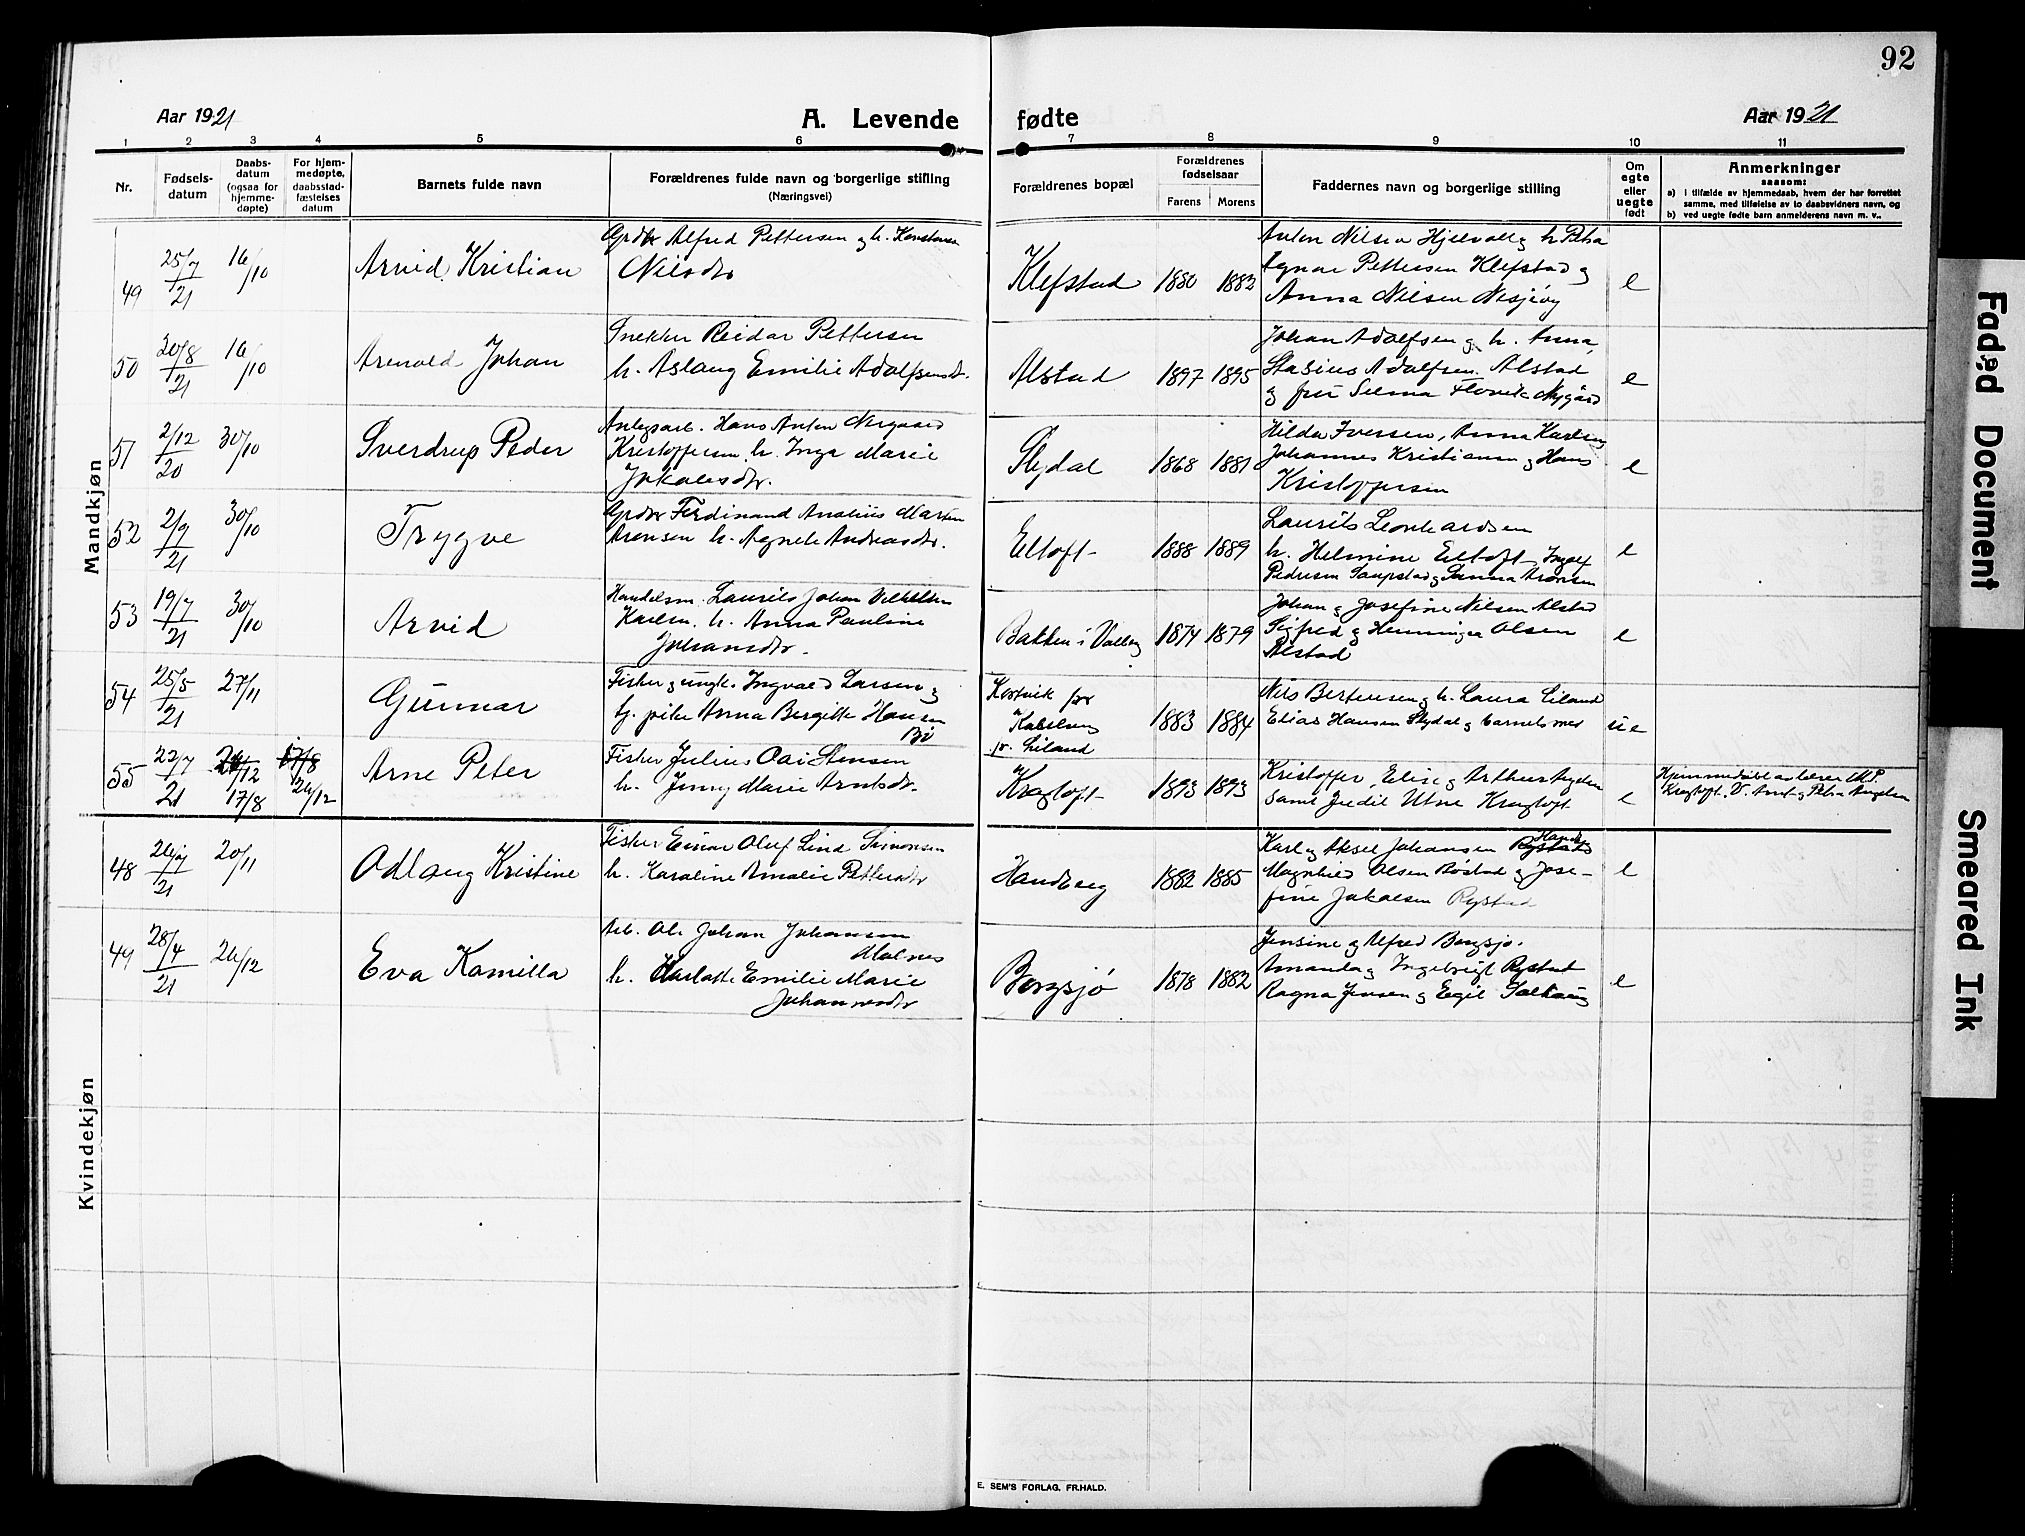 92
Aar 1921
A. Levende fødte
Aar 1921
1 2 3 4 5 6 7 8 9 10 11
Nr.
Fødselsdatum
Daabsdatum (ogsaa for hjemmedøpte)
For hjemmedøpte, daabsstadfæstelses datum
Barnets fulde navn
Forældrenes fulde navn og borgerlige stilling
(Næringsvei)
Forældrenes bopæl
Forældrenes fødselsaar
Farens Morens
Faddernes navn og borgerlige stilling
Om egte eller uegte født
Anmerkninger
saasom:
a) i tilfælde av hjemmedaab, hvem der har forrettet samme, med tilføielse av to daabsvidners navn, og
b) ved uegte fødte barn anmelderens navn m. v..
Mandkjøn
49 25/7 21 16/10 Arvid Kristian
Grdbr Alfred Pettersen og h. Konstanse
Nilsdtr
Klefstad 1880 1882
Anton Nilsen Hjelvoll og h. Petra
Pettersen Klefstad og
Anna Nilsen Nesjeøy
e
50 20/8 21 16/10 Arnold Johan
Snekker Reidar Pettersen
h. Aslaug Emilie Adolfsensdtr.
Alstad 1897 1895
Johan Adolfsen og h. Anna,
Stasius Adolfsen Alstad
og fru Selma Flovik Nygård
e
51 2/12 20 30/10 Sverdrup Peder
Anlegsarb. Hans Anton Nergaard
Kristoffersen h. Inga Marie
Jakobsdtr.
Slydal 1868 1881
Hilda Iversen, Anna Karlsen
Johannes Kristiansen og Hans
Kristoffersen
e
52 2/9 21 30/10 Trygve
Grdbr Ferdinand Analius Martin
Aronsen h. Agnete Andreasdtr.
Eltoft 1888 1889
Laurits Leonhardsen
h. Helmine Eltoft, Ingolf
Pedersen Saupstad og Sanna Aronsen
e
53 19/7 21 30/10 Arvid
Handelsm. Laurits Johan Vilhelm
Karlsen h. Anna Pauline
Johansdtr.
Bakken i Valberg 1874 1879
Johan og Josefine Nilsen Alstad
Sigfred og Henninga Olsen
Alstad
e
54 25/5 21 27/11 Gunnar
Fisker og ungk. Ingvald Larsen og
tj. pike Anna Bergitte Hansen
Bø
Kortvik pr
Kabelvåg
pr. Liland
1883 1884
Nils Berteusen og h. Laura Liland
Elias Hansen Slydal og barnets mor
ue
55 22/7 21 26/12 17/8 17/8 26/12 Arne Peter
Fisker Julius Oai Stensen
h. Jenny Marie Arntsdtr.
Kragtoft 1893 1893
Kristoffer, Elise og Arthur Angelsen
samt Jredil Utne Kragtoft
e
Hjemmedøbt av lærer M. P.
Kragtoft. V. Arnt og Petra Angelsen
Kvindekjøn
48 26/7 21 20/11 Odlaug Kristine
Fisker Einar Oluf Lind Simonsen
h. Karoline Amalie Pettersdtr
Handberg 1882 1885
Karl og Aksel Johansen Rystad Handb.
Magnhild Olsen Røstad og Jose-
fine Jakobsen Rystad
e
49 28/4 21 26/12 Eva Kamilla
Arb. Ole Johan Johansen
Malnes
h. Charlotte Emilie Marie
Johannesdtr
Borgsjø 1878 1882
Jensine og Alfred Borgsjø.
Amanda og Ingebrigt Rystad
Ragna Jensen og Egil Solhaug
e
E. SEM'S FORLAG, FR.HALD.
Faded Document
Smeared Ink